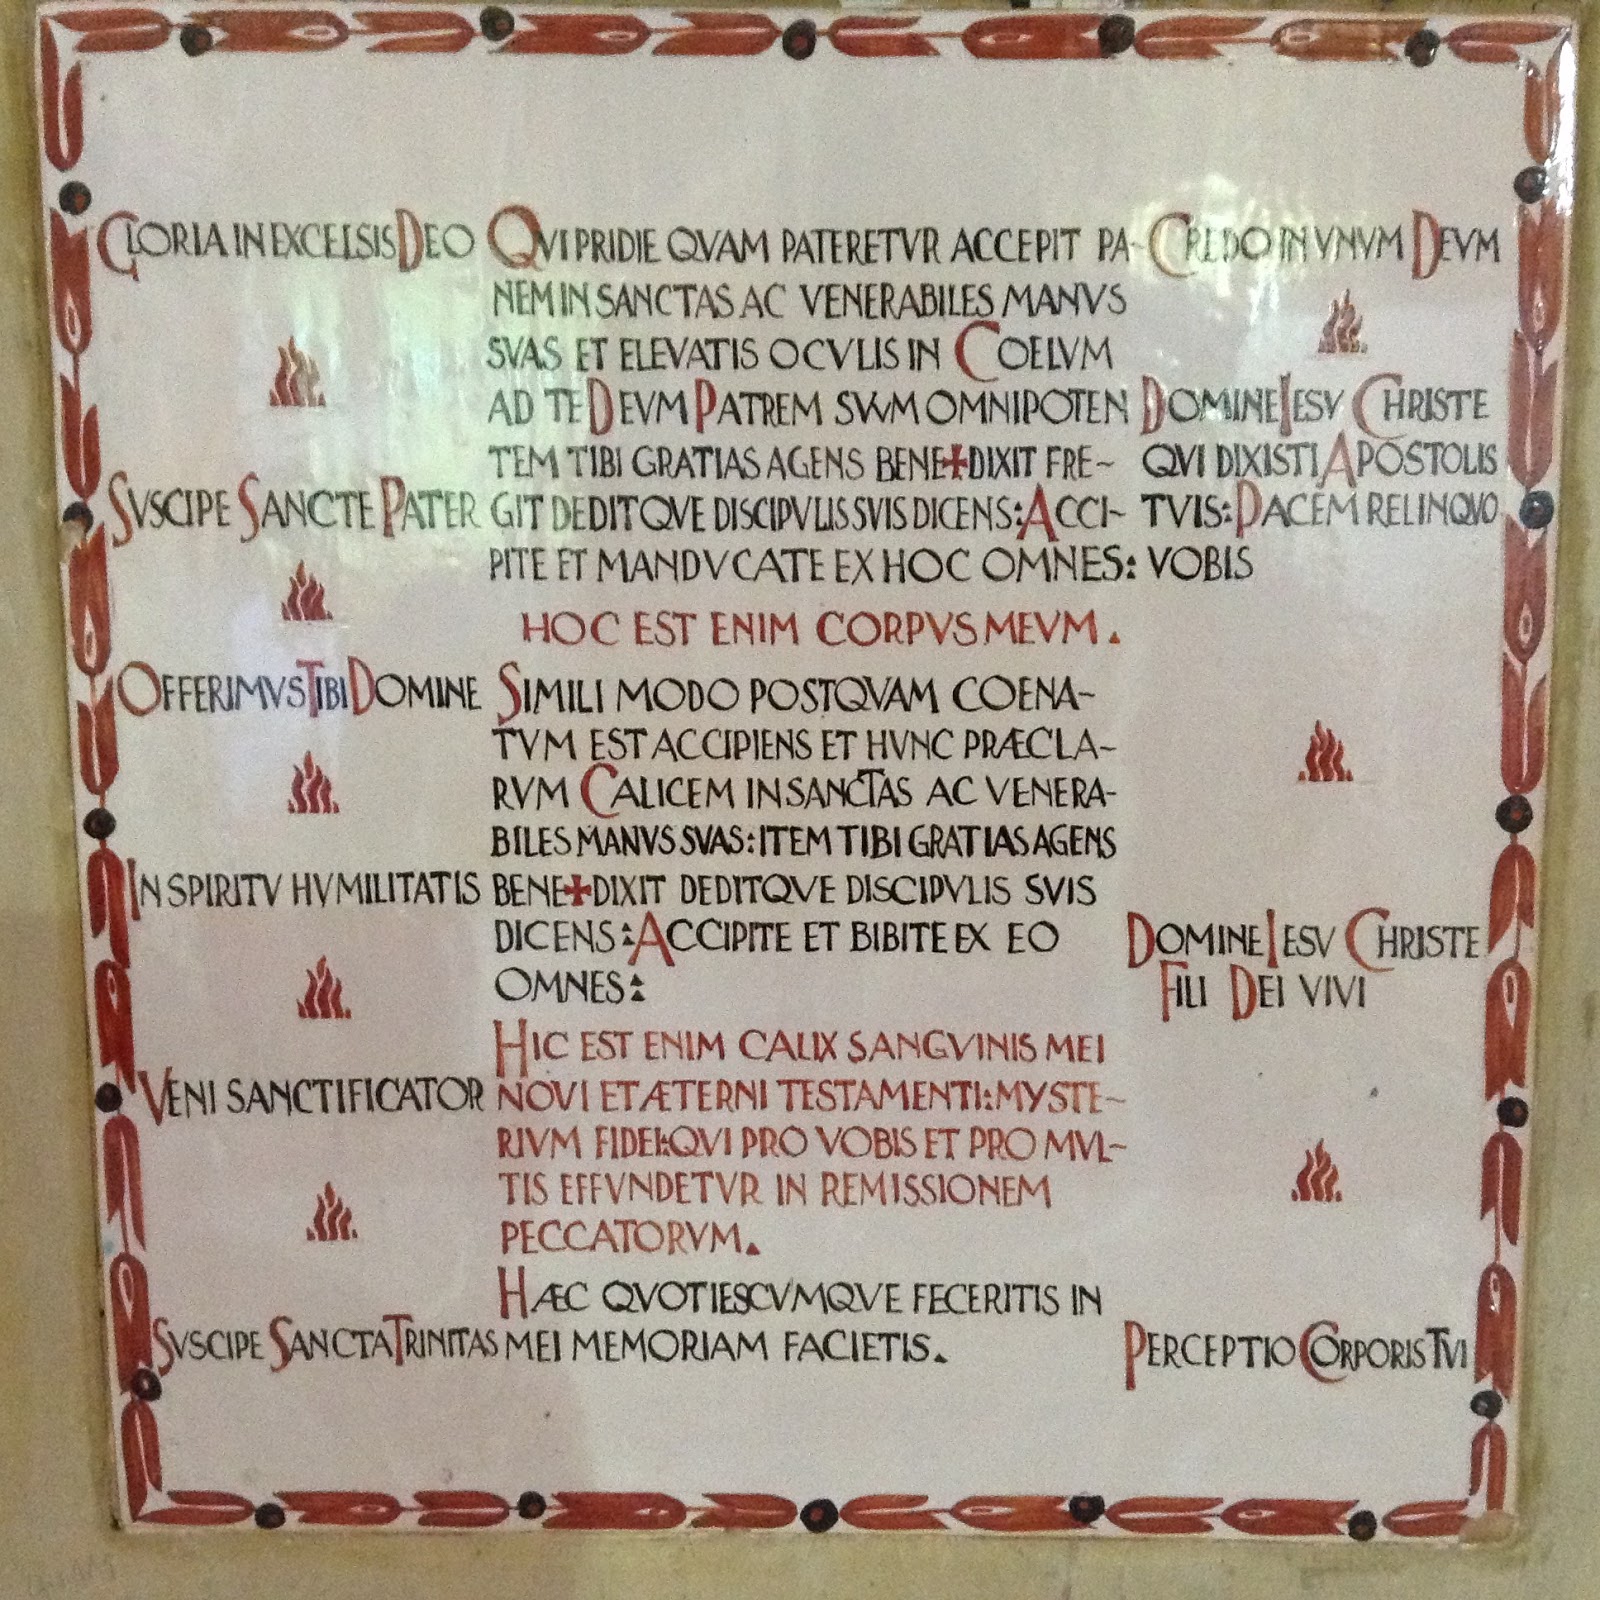 GLORIA IN EXCELSIS DEO
SVSCIPE SANCTE PATER
OFFERIMVS TIBI DOMINE
IN SPIRITV HVMILITATIS
VENI SANCTIFICATOR
SVSCIPE SANCTA TRINITAS
QVI PRIDIE QVAM PATERETVR ACCEPIT PA-
NEM IN SANCTAS AC VENERABILES MANVS
SVAS ET ELEVATIS OCVLIS IN COELVM
AD TE DEVM PATREM SVVM OMNIPOTEN
TEM TIBI GRATIAS AGENS BENE✠DIXIT FRE-
GIT DEDITQVE DISCIPVLIS SVIS DICENS: ACCI-
PITE ET MANDVCATE EX HOC OMNES:
HOC EST ENIM CORPVS MEVM.
SIMILI MODO POSTQVAM COENA-
TVM EST ACCIPIENS ET HVNC PRÆCLA-
RVM CALICEM IN SANCTAS AC VENERA-
BILES MANVS SVAS: ITEM TIBI GRATIAS AGENS
BENE✠DIXIT DEDITQVE DISCIPVLIS SVIS
DICENS: ACCIPITE ET BIBITE EX EO
OMNES:
HIC EST ENIM CALIX SANGVINIS MEI
NOVI ET ÆTERNI TESTAMENTI: MYSTE-
RIVM FIDEI: QVI PRO VOBIS ET PRO MVL-
TIS EFFVNDETVR IN REMISSIONEM
PECCATORVM.
HÆC QVOTIESCVMQVE FECERITIS IN
MEI MEMORIAM FACIETIS.
CREDO IN VNVM DEVM
DOMINE IESV CHRISTE
QVI DIXISTI APOSTOLIS
TVIS: PACEM RELINQVO
VOBIS
DOMINE IESV CHRISTE
FILI DEI VIVI
PERCEPTIO CORPORIS TVI